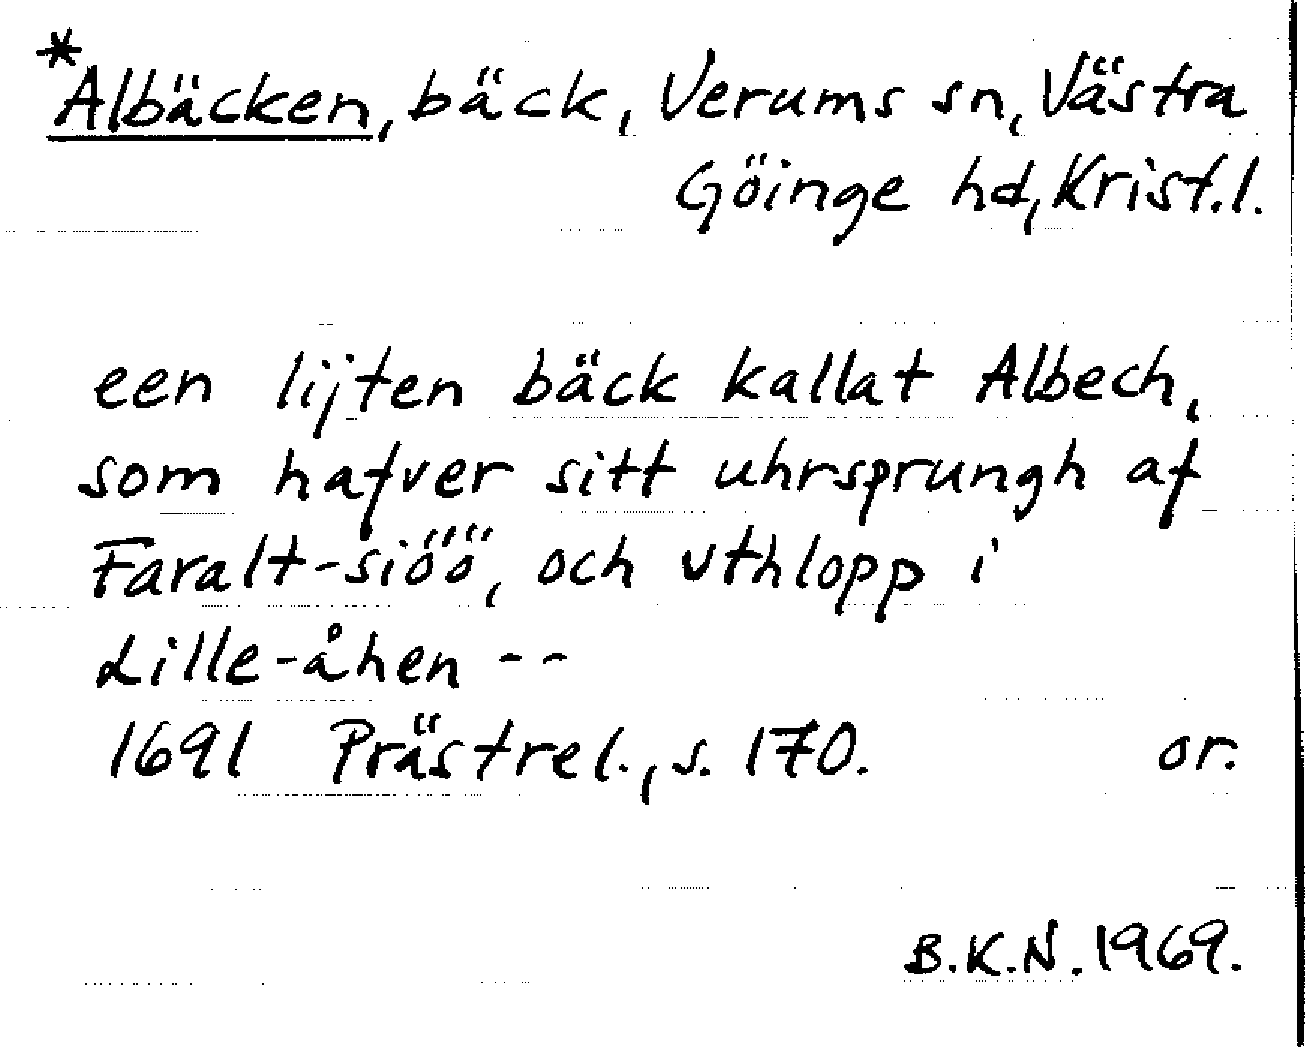 *Albäcken, bäck, Verums sn, Västra
Göinge hd, Krist.l.
een lijten bäck kallat Albech,
som hafver sitt uhrsprungh af
Faralt-siöö, och vthlopp i
Lille-åhen --
1691 Prästrel., s. 170. or.
B.K.N. 1969.